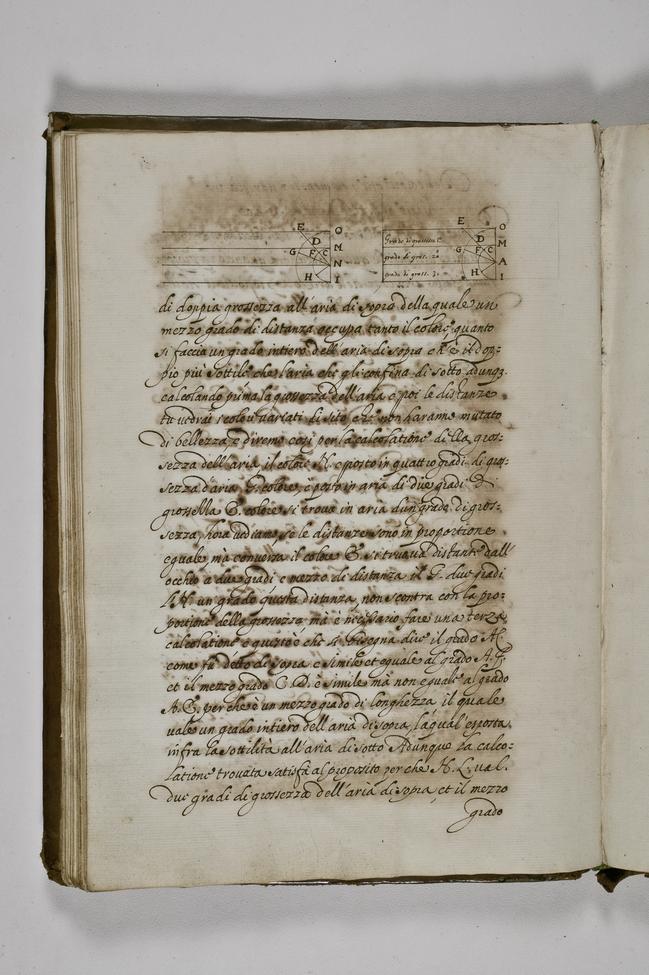 E O E O
D M D M
G F C N G F C A
H I H I
Grado di grossezza
grado di gross. 2
grado di gross. 3
di doppia grossezza all'aria di sopra della quale un
mezzo grado di distanza occupa tanto il colore quanto
si faccia un grado intiero dell'aria di sopra ch'è il dop:
pio più sottile che l'aria che gli confina di sotto adunq.
calcolando prima la grossezza dell'aria e poi le distanze
tu vedrai i colori variati di sito che non haranno mutato
di bellezza e diremo così per la calcolatione della gros:
sezza dell'aria, il colore H. è posto in quattro gradi di gros:
sezza d'aria G. colore, è posto in aria di due gradi di
grossezza E. colore si trova in aria d'un grado di gros:
sezza, hora vediamo, se le distanze sono in proportione
eguale, ma conversa il colore E. si trova distante dall'
occhio a due gradi e mezzo di distanza il G. due gradi
l'H. un grado questa distanza, non scontra con la pro:
portione della grossezza mà è necessario fare una terza
calcolatione e quisto è che ti bisogna dire il grado A.
come fù detto di sopra è simile et equale al grado A. F.
et il mezzo grado C. D. è simile mà non equale al grado
A. E. perche è un mezzo grado di longhezza, il quale
vale un grado intiero dell'aria di sopra, la qual è posta
infra la sottilità all'aria di sotto Adunque la calco:
latione trovata satisfà al proposito perche A. L. val.
due gradi di grossezza dell'aria di sopra, et il mezzo
grado